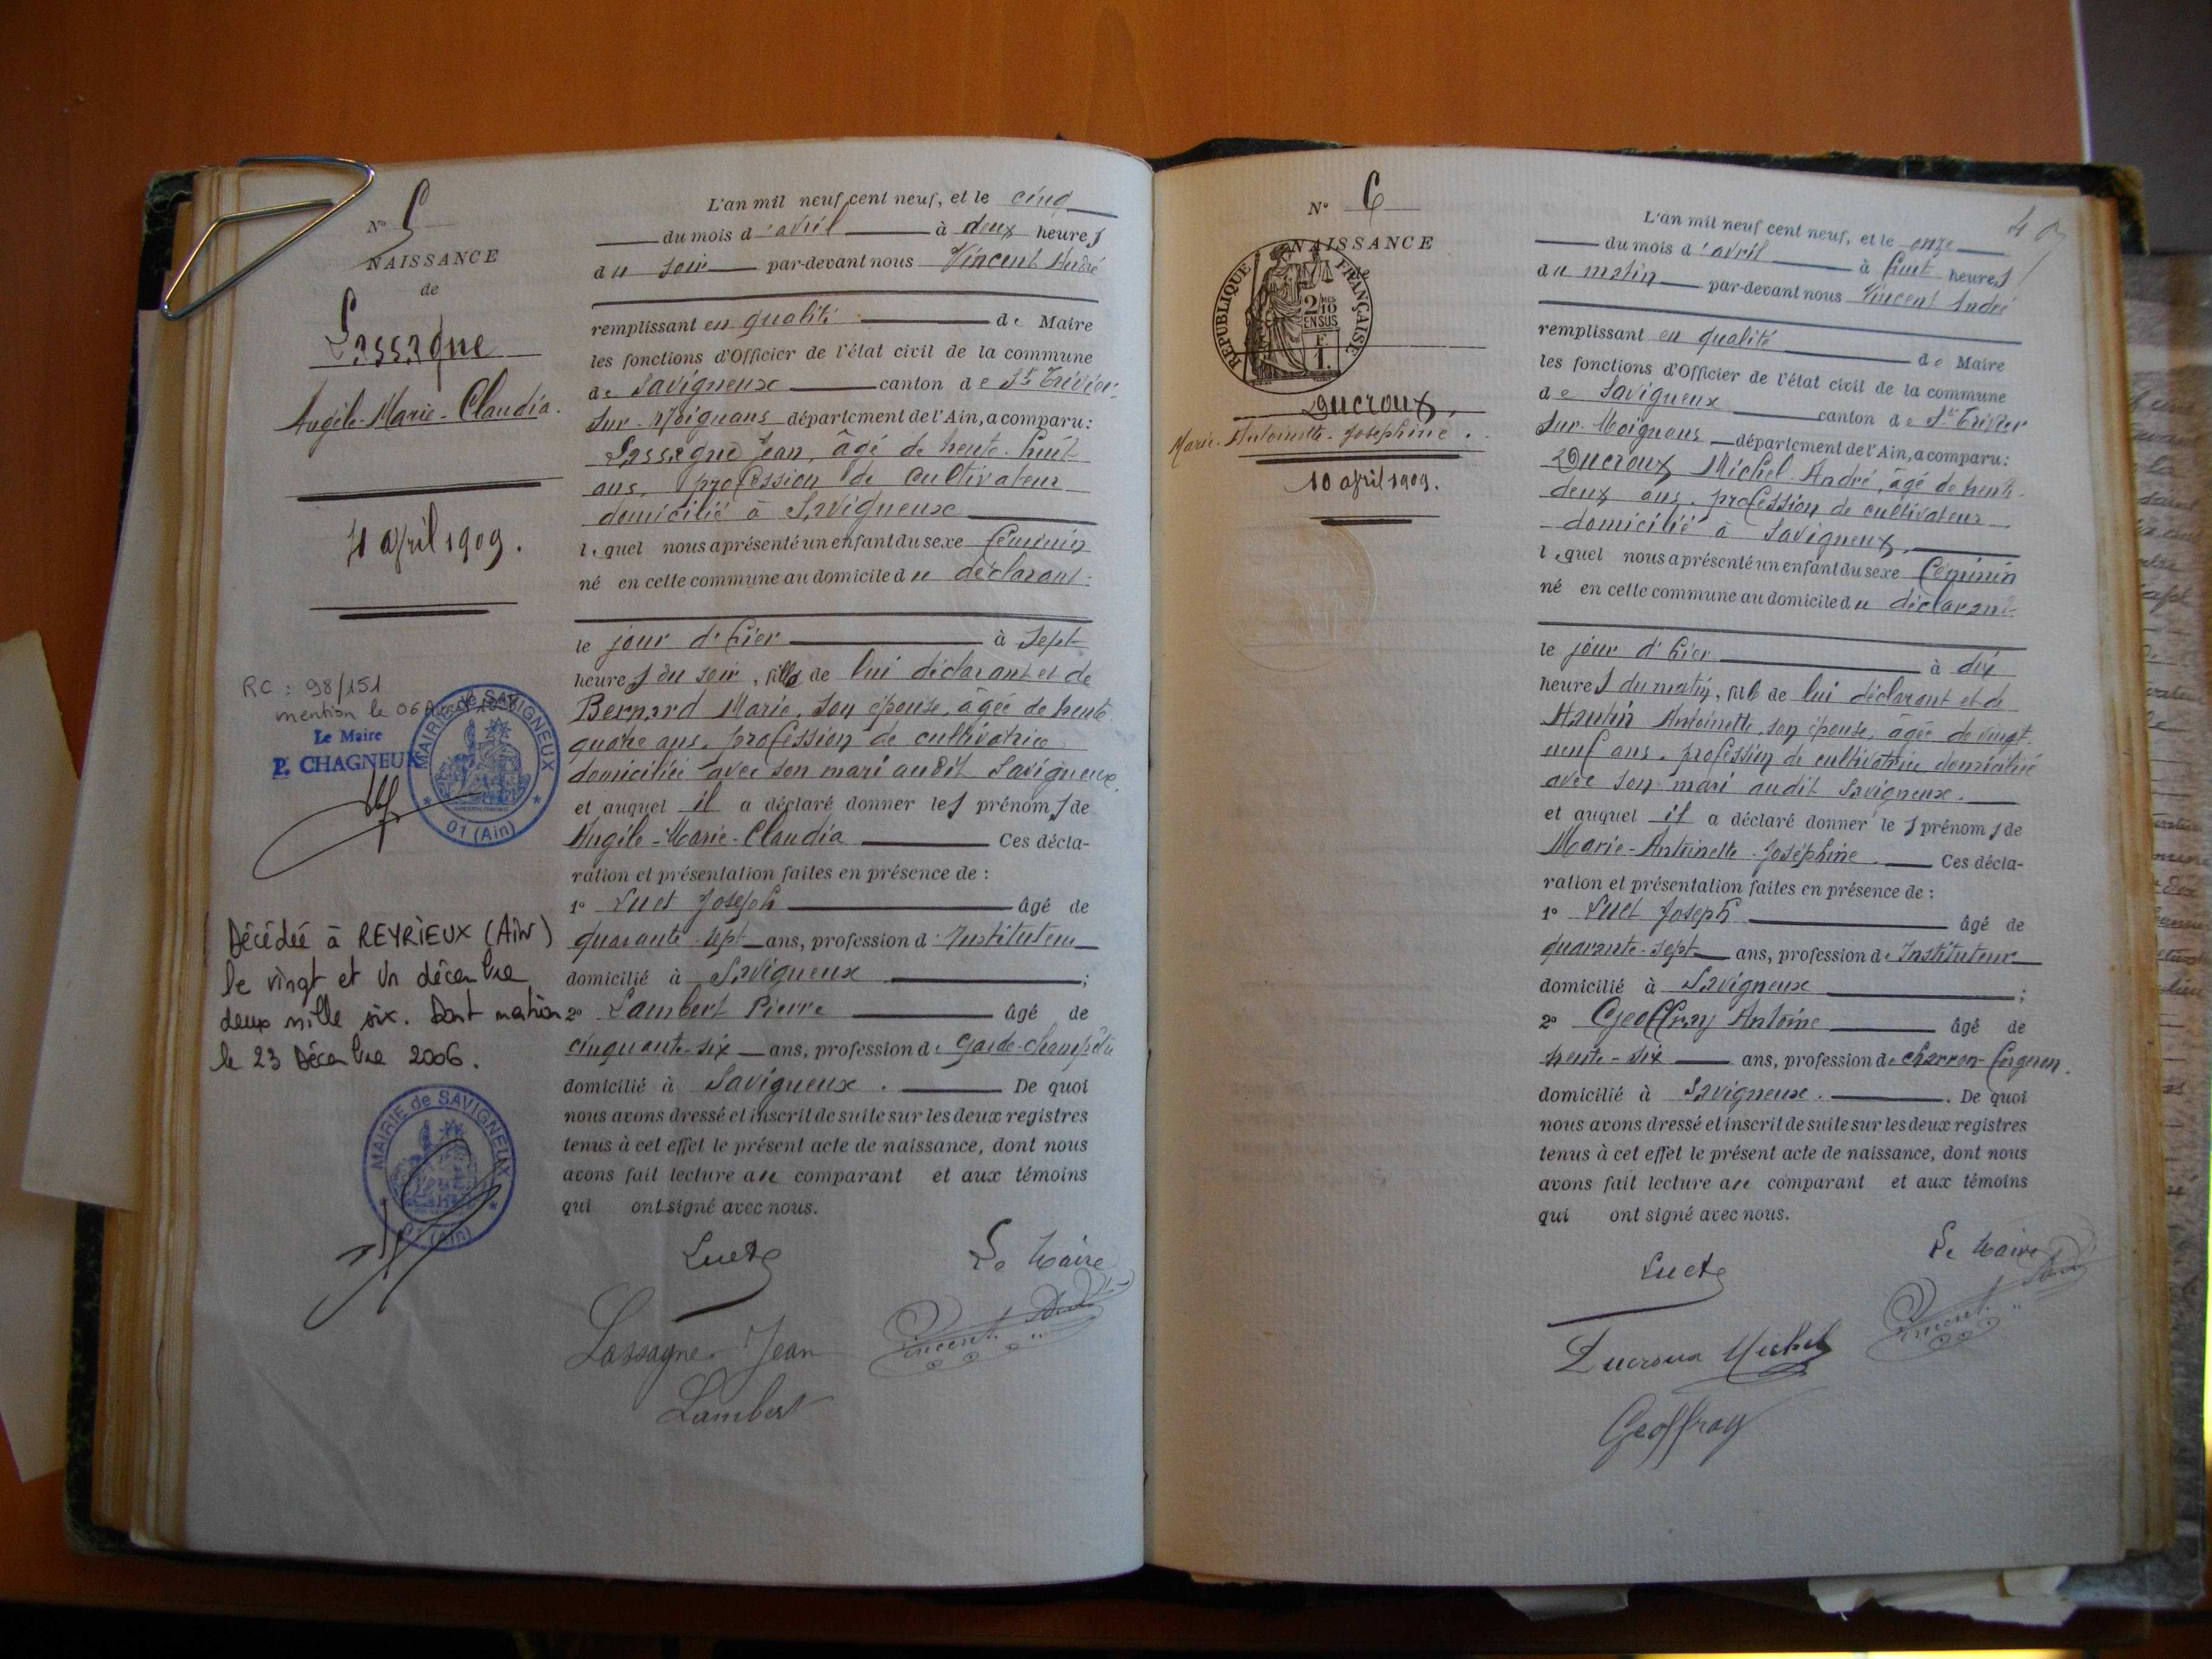 N° 5
NAISSANCE
de
Lassagne
Angèle-Marie-Claudia.
4 avril 1909.
RC : 98/151
mention le 06
Le Maire
P. CHAGNEUX
MAIRIE de SAVIGNEUX
01 (Ain)
Décédée à REYRIEUX (Ain)
le vingt et un décembre
deux mille six. Dont mention
le 23 Décembre 2006.
MAIRIE de SAVIGNEUX
01 (Ain)
L'an mil neuf cent neuf, et le cinq
du mois d'avril à deux heures
du soir par-devant nous Vincent André
remplissant en qualité de Maire
les fonctions d'Officier de l'état civil de la commune
de Savigneux canton de St Trivier-
sur-Moignans département de l'Ain, a comparu:
Lassagne Jean, âgé de trente-huit
ans, profession de cultivateur
domicilié à Savigneux
lequel nous a présenté un enfant du sexe féminin
né en cette commune au domicile du déclarant
le jour d'hier à sept
heures du soir, fille de lui déclarant et de
Bernard Marie, son épouse, âgée de trente-
quatre ans, profession de cultivatrice
domiciliée avec son mari audit Savigneux.
et auquel il a déclaré donner les prénoms de
Angèle-Marie-Claudia Ces décla-
ration et présentation faites en présence de :
1° Luet Joseph âgé de
quarante-sept ans, profession d'Instituteur
domicilié à Savigneux ;
2° Lambert Pierre âgé de
cinquante-six ans, profession de Garde-champêtre
domicilié à Savigneux. De quoi
nous avons dressé et inscrit de suite sur les deux registres
tenus à cet effet le présent acte de naissance, dont nous
avons fait lecture au comparant et aux témoins
qui ont signé avec nous.
Luet Le Maire
Lassagne Jean Vincent André
Lambert
N° 6
NAISSANCE
RÉPUBLIQUE FRANÇAISE
2/10
EN SUS
Ducroux,
Marie-Antoinette-Joséphine.
10 avril 1909.
L'an mil neuf cent neuf, et le onze
du mois d'avril à huit heures
du matin par-devant nous Vincent André
remplissant en qualité de Maire
les fonctions d'Officier de l'état civil de la commune
de Savigneux canton de St Trivier
sur-Moignans département de l'Ain, a comparu:
Ducroux Michel-André, âgé de trente-
deux ans, profession de cultivateur
domicilié à Savigneux,
lequel nous a présenté un enfant du sexe féminin
né en cette commune au domicile du déclarant
le jour d'hier à dix
heures du matin, fille de lui déclarant et de
Antoinette, son épouse, âgée de vingt-
neuf ans, profession de cultivatrice domiciliée
avec son mari audit Savigneux.
et auquel il a déclaré donner les prénoms de
Marie-Antoinette-Joséphine. Ces décla-
ration et présentation faites en présence de :
1° Luet Joseph âgé de
quarante-sept ans, profession d'Instituteur
domicilié à Savigneux ;
2° Geoffray Antoine âgé de
trente-six ans, profession de charron-forgeron.
domicilié à Savigneux. De quoi
nous avons dressé et inscrit de suite sur les deux registres
tenus à cet effet le présent acte de naissance, dont nous
avons fait lecture au comparant et aux témoins
qui ont signé avec nous.
Luet Le Maire
Ducroux Michel Vincent
Geoffray